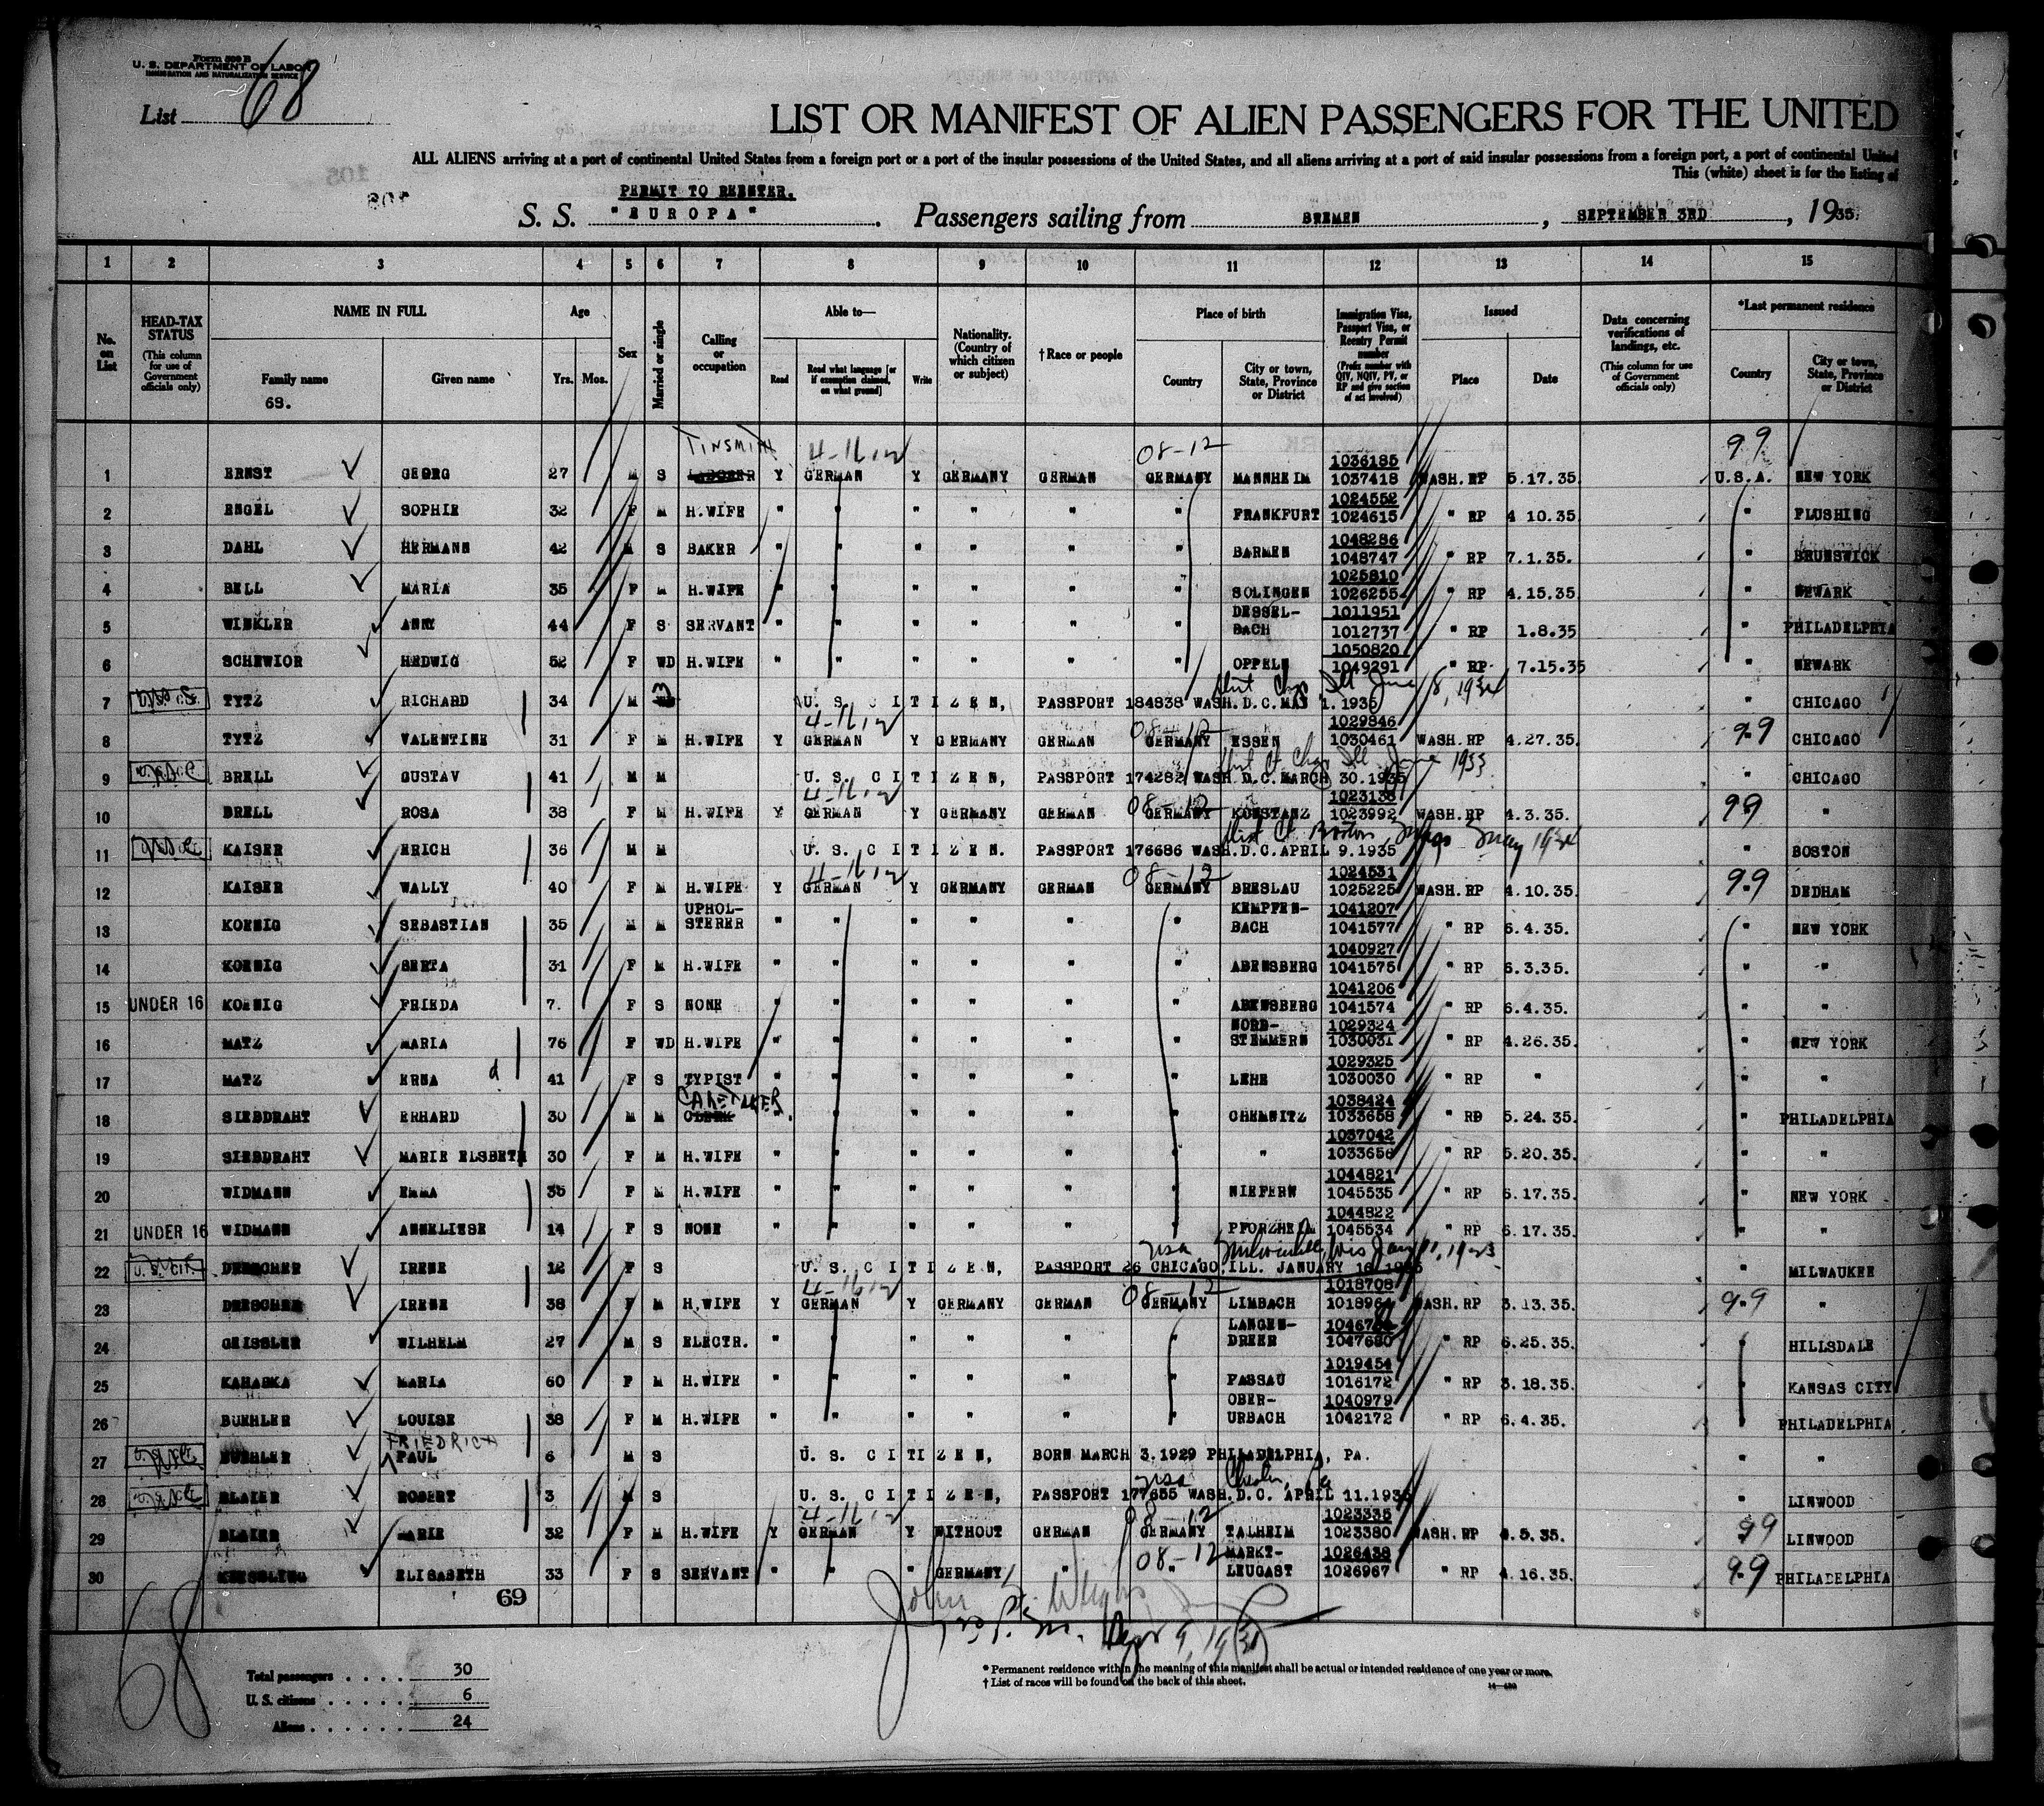 Form 500 B
U. S. DEPARTMENT OF LABOR
IMMIGRATION AND NATURALIZATION SERVICE
List 68
LIST OR MANIFEST OF ALIEN PASSENGERS FOR THE UNITED
ALL ALIENS arriving at a port of continental United States from a foreign port or a port of the insular possessions of the United States, and all aliens arriving at a port of said insular possessions from a foreign port, a port of continental United
This (white) sheet is for the listing of
PERMIT TO REENTER.
S. S. "EUROPA" . Passengers sailing from BREMEN , SEPTEMBER 3RD , 1935.
1 2 3 4 5 6 7 8 9 10 11 12 13 14 15
No. on List
HEAD-TAX STATUS (This column for use of Government officials only)
NAME IN FULL Family name Given name
68.
Age Yrs. Mos.
Sex
Married or single
Calling or occupation
Able to— Read Read what language [or if exemption claimed, on what ground] Write
Nationality. (Country of which citizen or subject)
†Race or people
Place of birth Country City or town, State, Province or District
Immigration Visa, Passport Visa, or Reentry Permit number (Prefix number with QIV, NQIV, PV, or RP and give section of act involved)
Issued Place Date
Data concerning verifications of landings, etc. (This column for use of Government officials only)
*Last permanent residence Country City or town, State, Province or District
TINSMITH 08-12 99
1 ERNST GEORG 27 M S LABORER Y GERMAN Y GERMANY GERMAN GERMANY MANNHEIM 1036185 1037418 WASH. RP 5.17.35. U.S.A. NEW YORK
2 ENGEL SOPHIE 32 F M H.WIFE " " " " " " FRANKFURT 1024552 1024615 " RP 4 10.35. " FLUSHING
3 DAHL HERMANN 42 M S BAKER " " " " " " BARMEN 1048286 1048747 " RP 7.1.35. " BRUNSWICK
4 BELL MARIA 35 F M H.WIFE " " " " " " SOLINGEN 1025810 1026255 " RP 4.15.35. " NEWARK
5 WINKLER ANNY 44 F S SERVANT " " " " " " DESSEL-BACH 1011951 1012737 " RP 1.8.35 " PHILADELPHIA
6 SCHEWIOR HEDWIG 52 F WD H.WIFE " " " " " " OPPELN 1050820 1049291 " RP 7.15.35 " NEWARK
7 TYTZ RICHARD 34 M U. S. CITIZEN, PASSPORT 184838 WASH.D.C. MAY 1.1935 " CHICAGO
8 TYTZ VALENTINE 31 F M H.WIFE Y GERMAN Y GERMANY GERMAN GERMANY ESSEN 1029846 1030461 WASH.RP 4.27.35. 99 CHICAGO
9 BRELL GUSTAV 41 M M U. S. CITIZEN, PASSPORT 174282 WASH.D.C. MARCH 30.1935 " CHICAGO
10 BRELL ROSA 38 F M H.WIFE Y GERMAN Y GERMANY GERMAN 08-12 GERMANY KONSTANZ 1023135 1023992 WASH.RP 4.3.35. 99 "
11 KAISER ERICH 36 M M U. S. CITIZEN. PASSPORT 176686 WASH.D.C. APRIL 9.1935 " BOSTON
12 KAISER WALLY 40 F M H.WIFE Y GERMAN Y GERMANY GERMAN 08-12 GERMANY BRESLAU 1024531 1025225 WASH.RP 4.10.35. 99 DEDHAM
13 KOENIG SEBASTIAN 35 M M UPHOL-STERER " " " " " " KEMPFEN-BACH 1041207 1041577 " RP 6.4.35. " NEW YORK
14 KOENIG BERTA 31 F M H.WIFE " " " " " " ABENSBERG 1040927 1041575 " RP 6.3.35. " "
15 UNDER 16 KOENIG FRIEDA 7. F S NONE " " " " " " ABENSBERG 1041206 1041574 " RP 6.4.35. " "
16 MATZ MARIA 76 F WD H.WIFE " " " " " " NORD-STEMMERN 1029324 1030031 " RP 4.26.35. " NEW YORK
17 MATZ ERNA 41 F S TYPIST " " " " " " LEHE 1029325 1030030 " RP " " "
CARETAKER
18 SIEBDRAHT ERHARD 30 M M CLERK " " " " " " CHEMNITZ 1038424 1033658 " RP 5.24.35. " PHILADELPHIA
19 SIEBDRAHT MARIE ELSBETH 30 F M H.WIFE " " " " " " " 1037042 1033656 " RP 5.20.35. " "
20 WIDMANN EMMA 35 F M H.WIFE " " " " " " NIEFERN 1044821 1045535 " RP 6.17.35. " NEW YORK
21 UNDER 16 WIDMANN ANNELIESE 14 F S NONE " " " " " " PFORZHEIM 1044822 1045534 " RP 6.17.35. " "
22 U.S. CIT. DRESCHER IRENE 12 F S U. S. CITIZEN, PASSPORT 26 CHICAGO, ILL. JANUARY " MILWAUKEE
23 DRESCHER IRENE 38 F M H.WIFE Y GERMAN Y GERMANY GERMAN 08-12 GERMANY LIMBACH 1018708 WASH.RP 3.13.35. 99 "
24 GEISSLER WILHELM 27 M S ELECTR. " " " " " " LANGEN-DREER 1047680 " RP 6.25.35. " HILLSDALE
25 MARIA 60 F M H.WIFE " " " " " " PASSAU 1019454 1016172 " RP 3.18.35. " KANSAS CITY
26 BUEHLER LOUISE 38 F M H.WIFE " " " " " " OBER-URBACH 1040979 1042172 " RP 6.4.35. " PHILADELPHIA
FRIEDRICH
27 BUEHLER PAUL 6 M S U. S. CITIZEN, BORN MARCH 3.1929 PHILADELPHIA, PA. " "
28 BLAIER ROBERT 3 M S U. S. CITIZEN, PASSPORT 177655 WASH.D.C. APRIL 11.1935 " LINWOOD
29 BLAIER MARIE 32 F M H.WIFE Y GERMAN Y WITHOUT GERMAN GERMANY TALHEIM 1023335 1023380 WASH.RP 4.5.35. 99 LINWOOD
30 ELISABETH 33 F S SERVANT " " " GERMANY " 08-12 " MARKT-LEUGAST 1026438 1026967 " RP 4.16.35. 99 PHILADELPHIA
69
68
Total passengers . . . . 30
U. S. citizens . . . . . 6
Aliens . . . . . . 24
* Permanent residence within the meaning of this manifest shall be actual or intended residence of one year or more.
† List of races will be found on the back of this sheet.